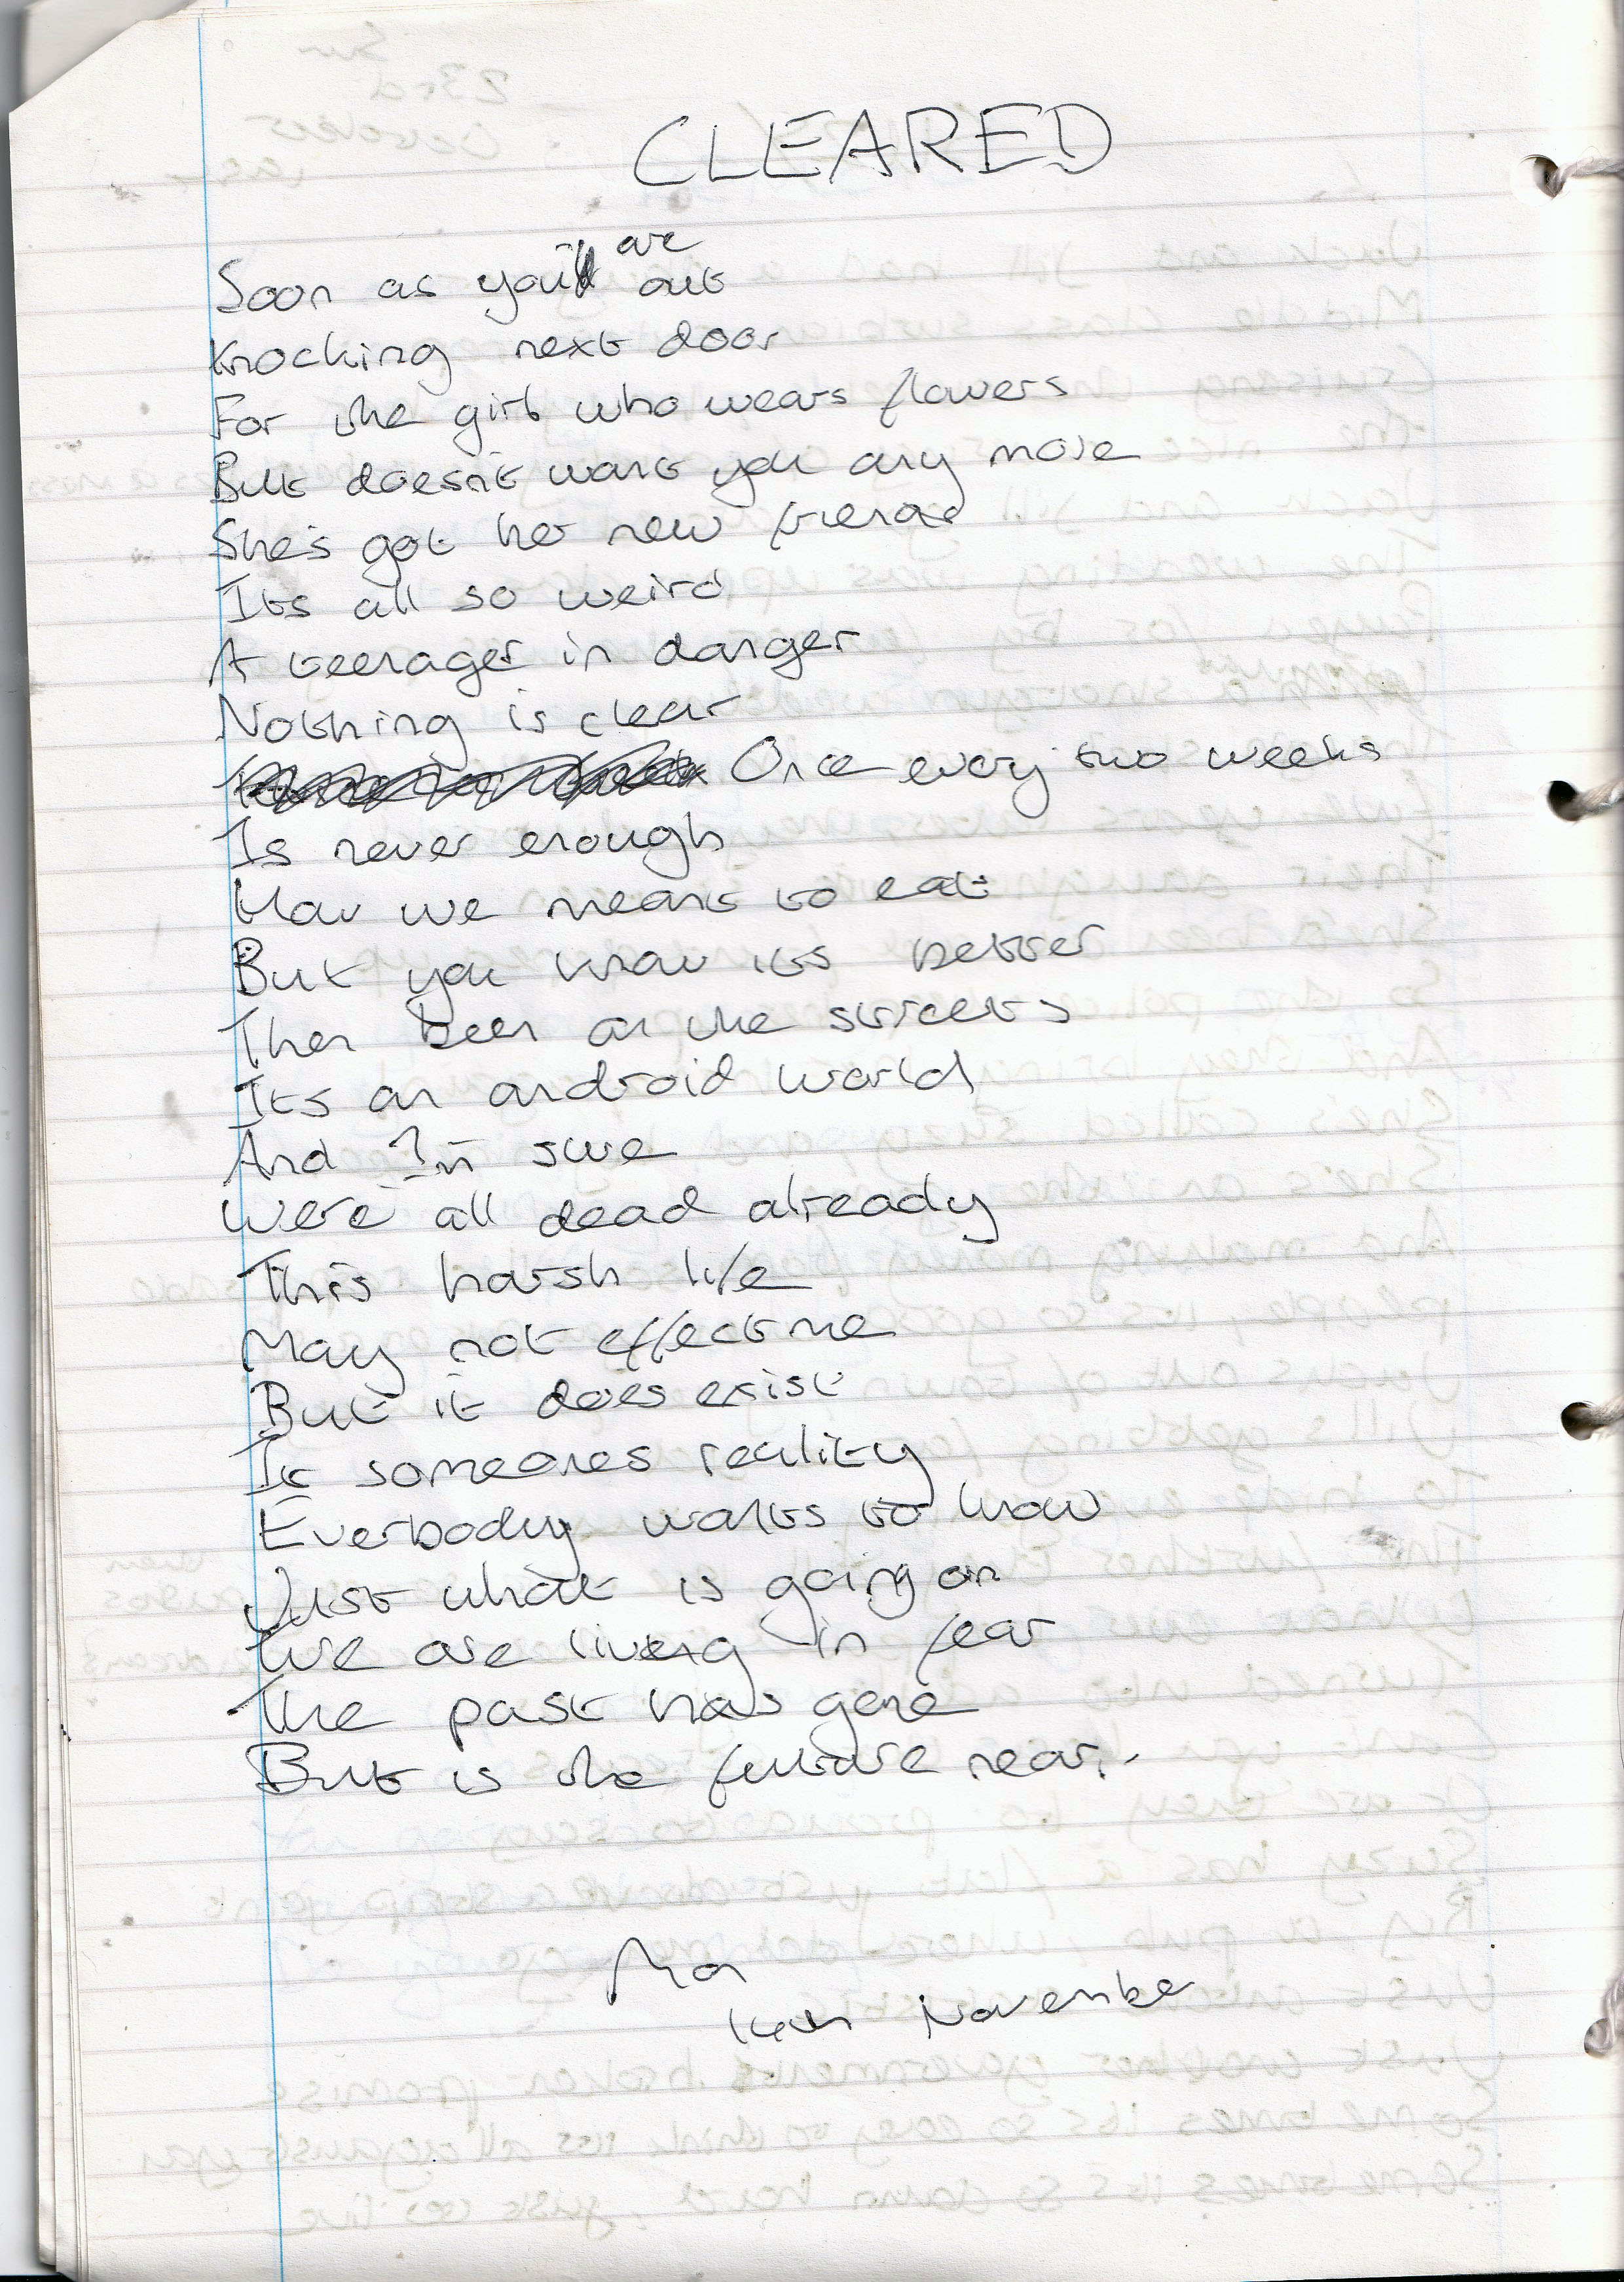 CLEARED
Soon as you are out
Knocking next door
For the girl who wears flowers
But doesn't want you any more
She's got her new friend
Its all so weird
A teenager in danger
Nothing is clear
Once every two weeks
Is never enough
How we meant to eat
But you know its better
Then been on the streets
Its an android world
And I'm sure
We're all dead already
This harsh life
May not effect me
But it does exist
It someones reality
Everbody wants to know
Just what is going on
We are living in fear
The past has gone
But is the future near.
Mon
14th November